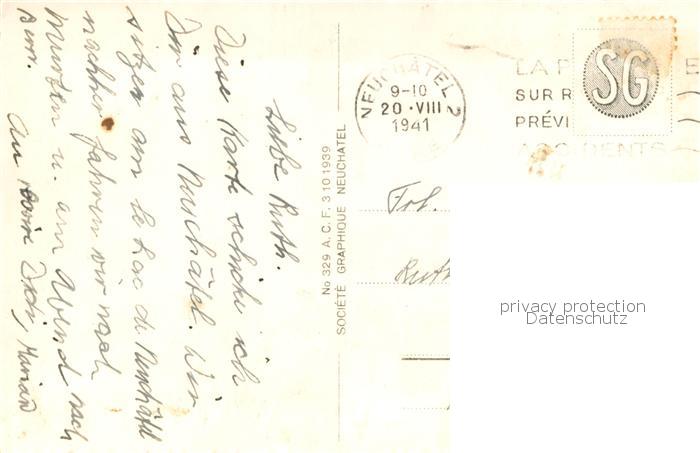 Liebe Ruth.
Diese Karte schicke ich
Dir aus Neuchâtel. Wir
sitzen am le Lac de Neuchâtel
nachher fahren wir nach
Murten u. am Abend nach
Bern. Au revoir
No 329 A. C. F. 3 10 1939
SOCIÉTÉ GRAPHIQUE NEUCHATEL
NEUCHÂTEL 2
9-10
20·VIII
1941
LA P E
SUR R
PRÉVI
ACCIDENTS
SG
Frl.
Ruth
privacy protection
Datenschutz